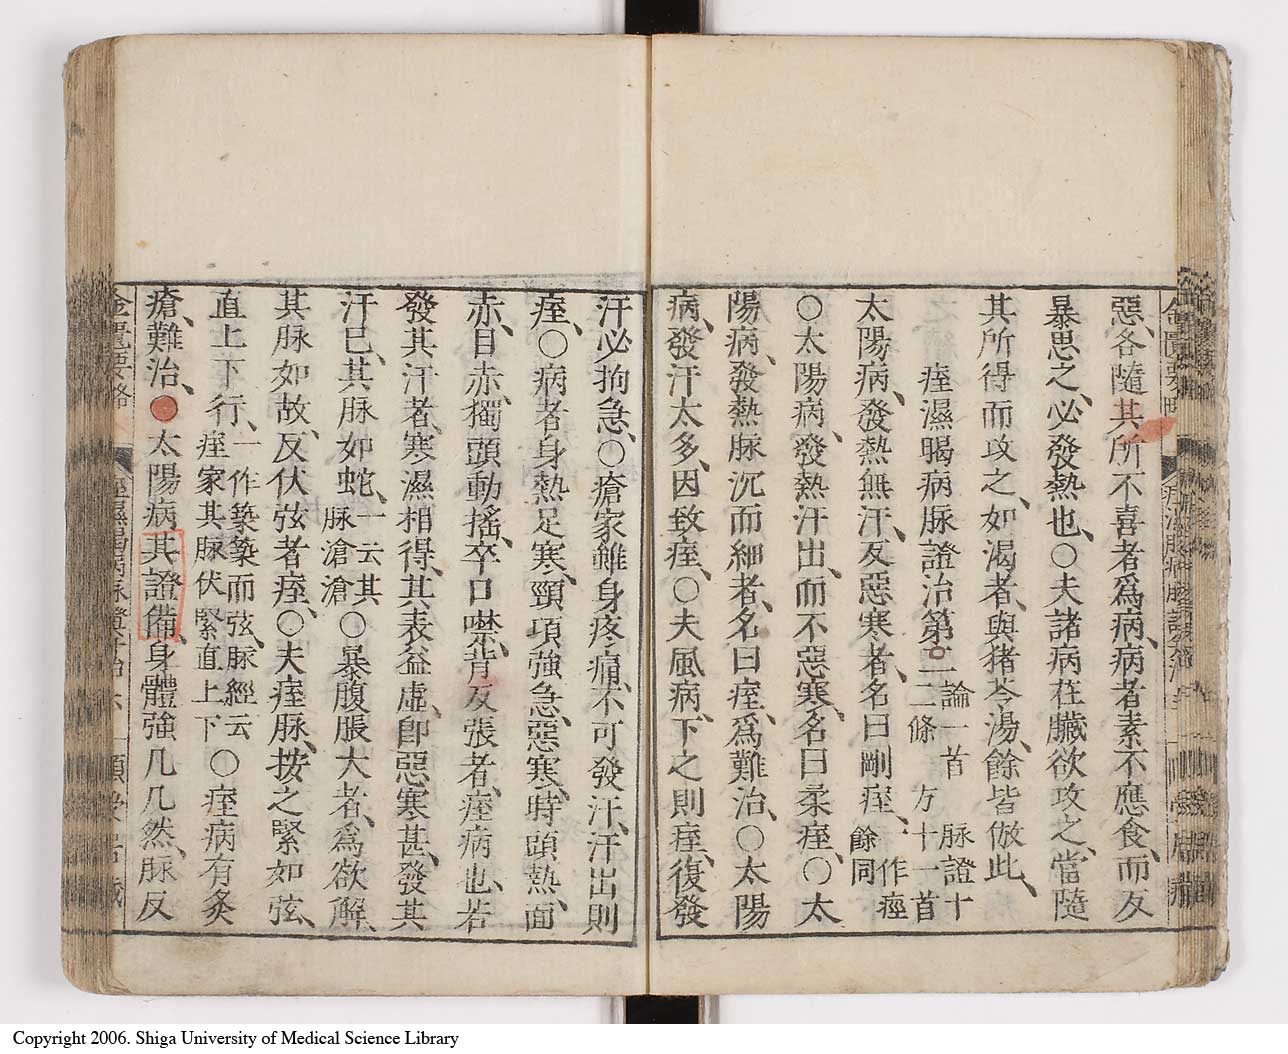 惡、各隨其所不喜者爲病、病者素不應食、而反
暴思之、必發熱也、○夫諸病在臟欲攻之、當隨
其所得而攻之、如渴者、與猪苓湯、餘皆倣此、
痙濕暍病脉證治第二 論一首 脉證十二條 方十一首
太陽病、發熱無汗、反惡寒者、名曰剛痙、一作痙餘同
○太陽病、發熱汗出、而不惡寒、名曰柔痙、○太
陽病、發熱脉沉而細者、名曰痙、爲難治、○太陽
病、發汗太多、因致痙、○夫風病、下之則痙、復發
汗必拘急、○瘡家雖身疼痛、不可發汗、汗出則
痙、○病者身熱足寒、頸項強急、惡寒、時頭熱、面
赤、目赤、獨頭動搖、卒口噤、背反張者、痙病也、若
發其汗者、寒濕相得、其表益虛、卽惡寒甚、發其
汗已、其脉如蛇、一云其脉滄滄 ○暴腹脹大者、爲欲解、
其脉如故、反伏弦者痙、○夫痙脉、按之緊如弦、
直上下行、一作築築而弦、脉經云痙家其脉伏緊直上下 ○痙病有灸
瘡難治、●太陽病其證備、身體強几几然、脉反
金匱要略
Copyright 2006. Shiga University of Medical Science Library